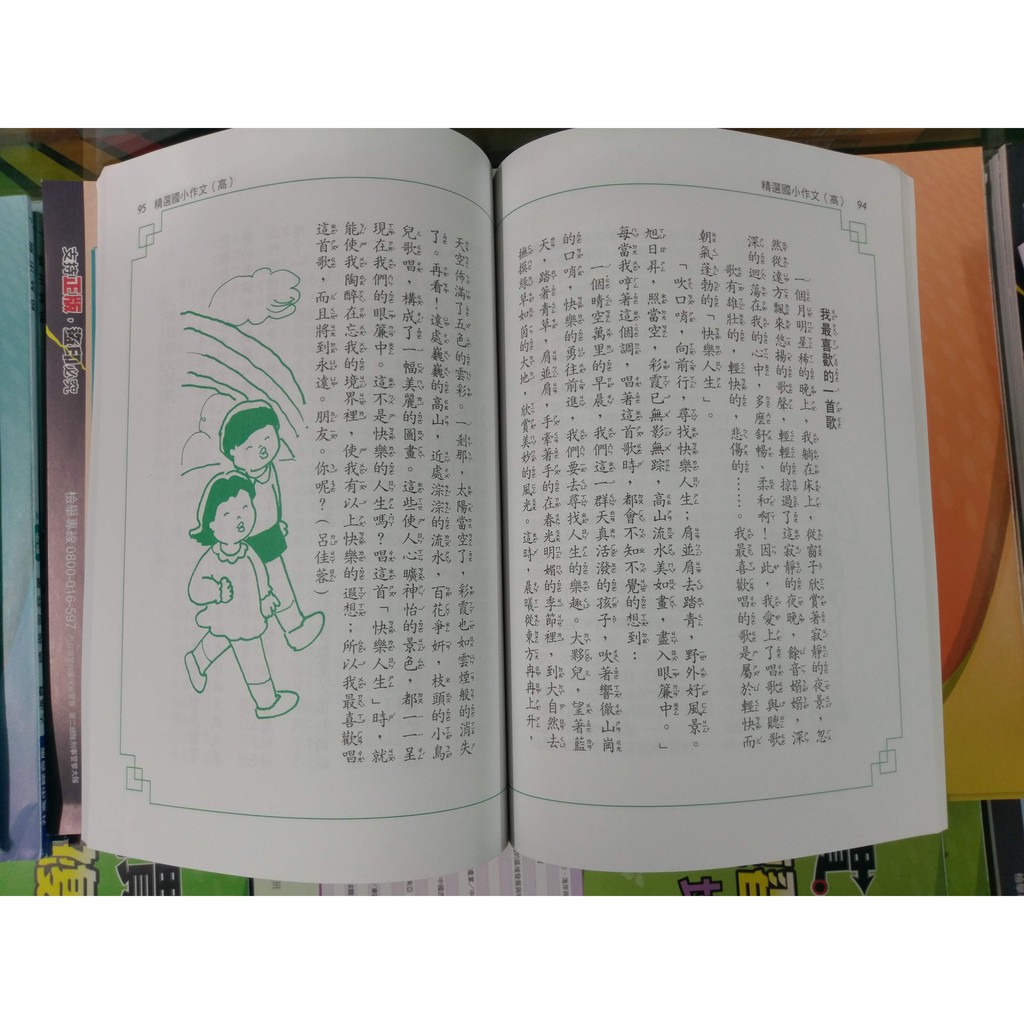 精選國小作文（高） 94
我最喜歡的一首歌
一個月明星稀的晚上，我躺在床上，從窗子欣賞著寂靜的夜景，忽
然從遠方飄來悠揚的歌聲，輕輕的掠過了這寂靜的夜晚，餘音嫋嫋，深
深的迴蕩在我的心中，多麼舒暢、柔和啊！因此，我愛上了唱歌與聽歌
歌有雄壯的，輕快的，悲傷的……。我最喜歡唱的歌是屬於輕快而
朝氣蓬勃的「快樂人生」。
「吹口哨，向前行，尋找快樂人生；肩並肩去踏青，野外好風景。
旭日昇，照當空，彩霞已無影無踪，高山流水美如畫，盡入眼簾中。」
每當我哼著這個調，唱著這首歌時，都會不知不覺的想到：
一個晴空萬里的早晨，我們這一群天真活潑的孩子，吹著響徹山崗
的口哨，快樂的勇往前進，我們要去尋找人生的樂趣。大夥兒，望著藍
天，踏著青草，肩並肩，手牽著手的在春光明媚的季節裡，到大自然去
撫摸綠草如茵的大地，欣賞美妙的風光。這時，晨曦從東方冉冉上升，
95 精選國小作文（高）
天空佈滿了五色的雲彩。一剎那，太陽當空了，彩霞也如雲煙般的消失
了。再看！遠處巍巍的高山，近處淙淙的流水，百花爭妍，枝頭的小鳥
兒歌唱，構成了一幅美麗的圖畫。這些使人心曠神怡的景色，都一一呈
現在我們的眼簾中。這不是快樂的人生嗎？唱這首「快樂人生」時，就
能使我陶醉在忘我的境界裡，使我有以上快樂的遐想；所以我最喜歡唱
這首歌，而且將到永遠。朋友。你呢？（呂佳蓉）
支持正版，盜印必究
檢舉專線 0800-016-597